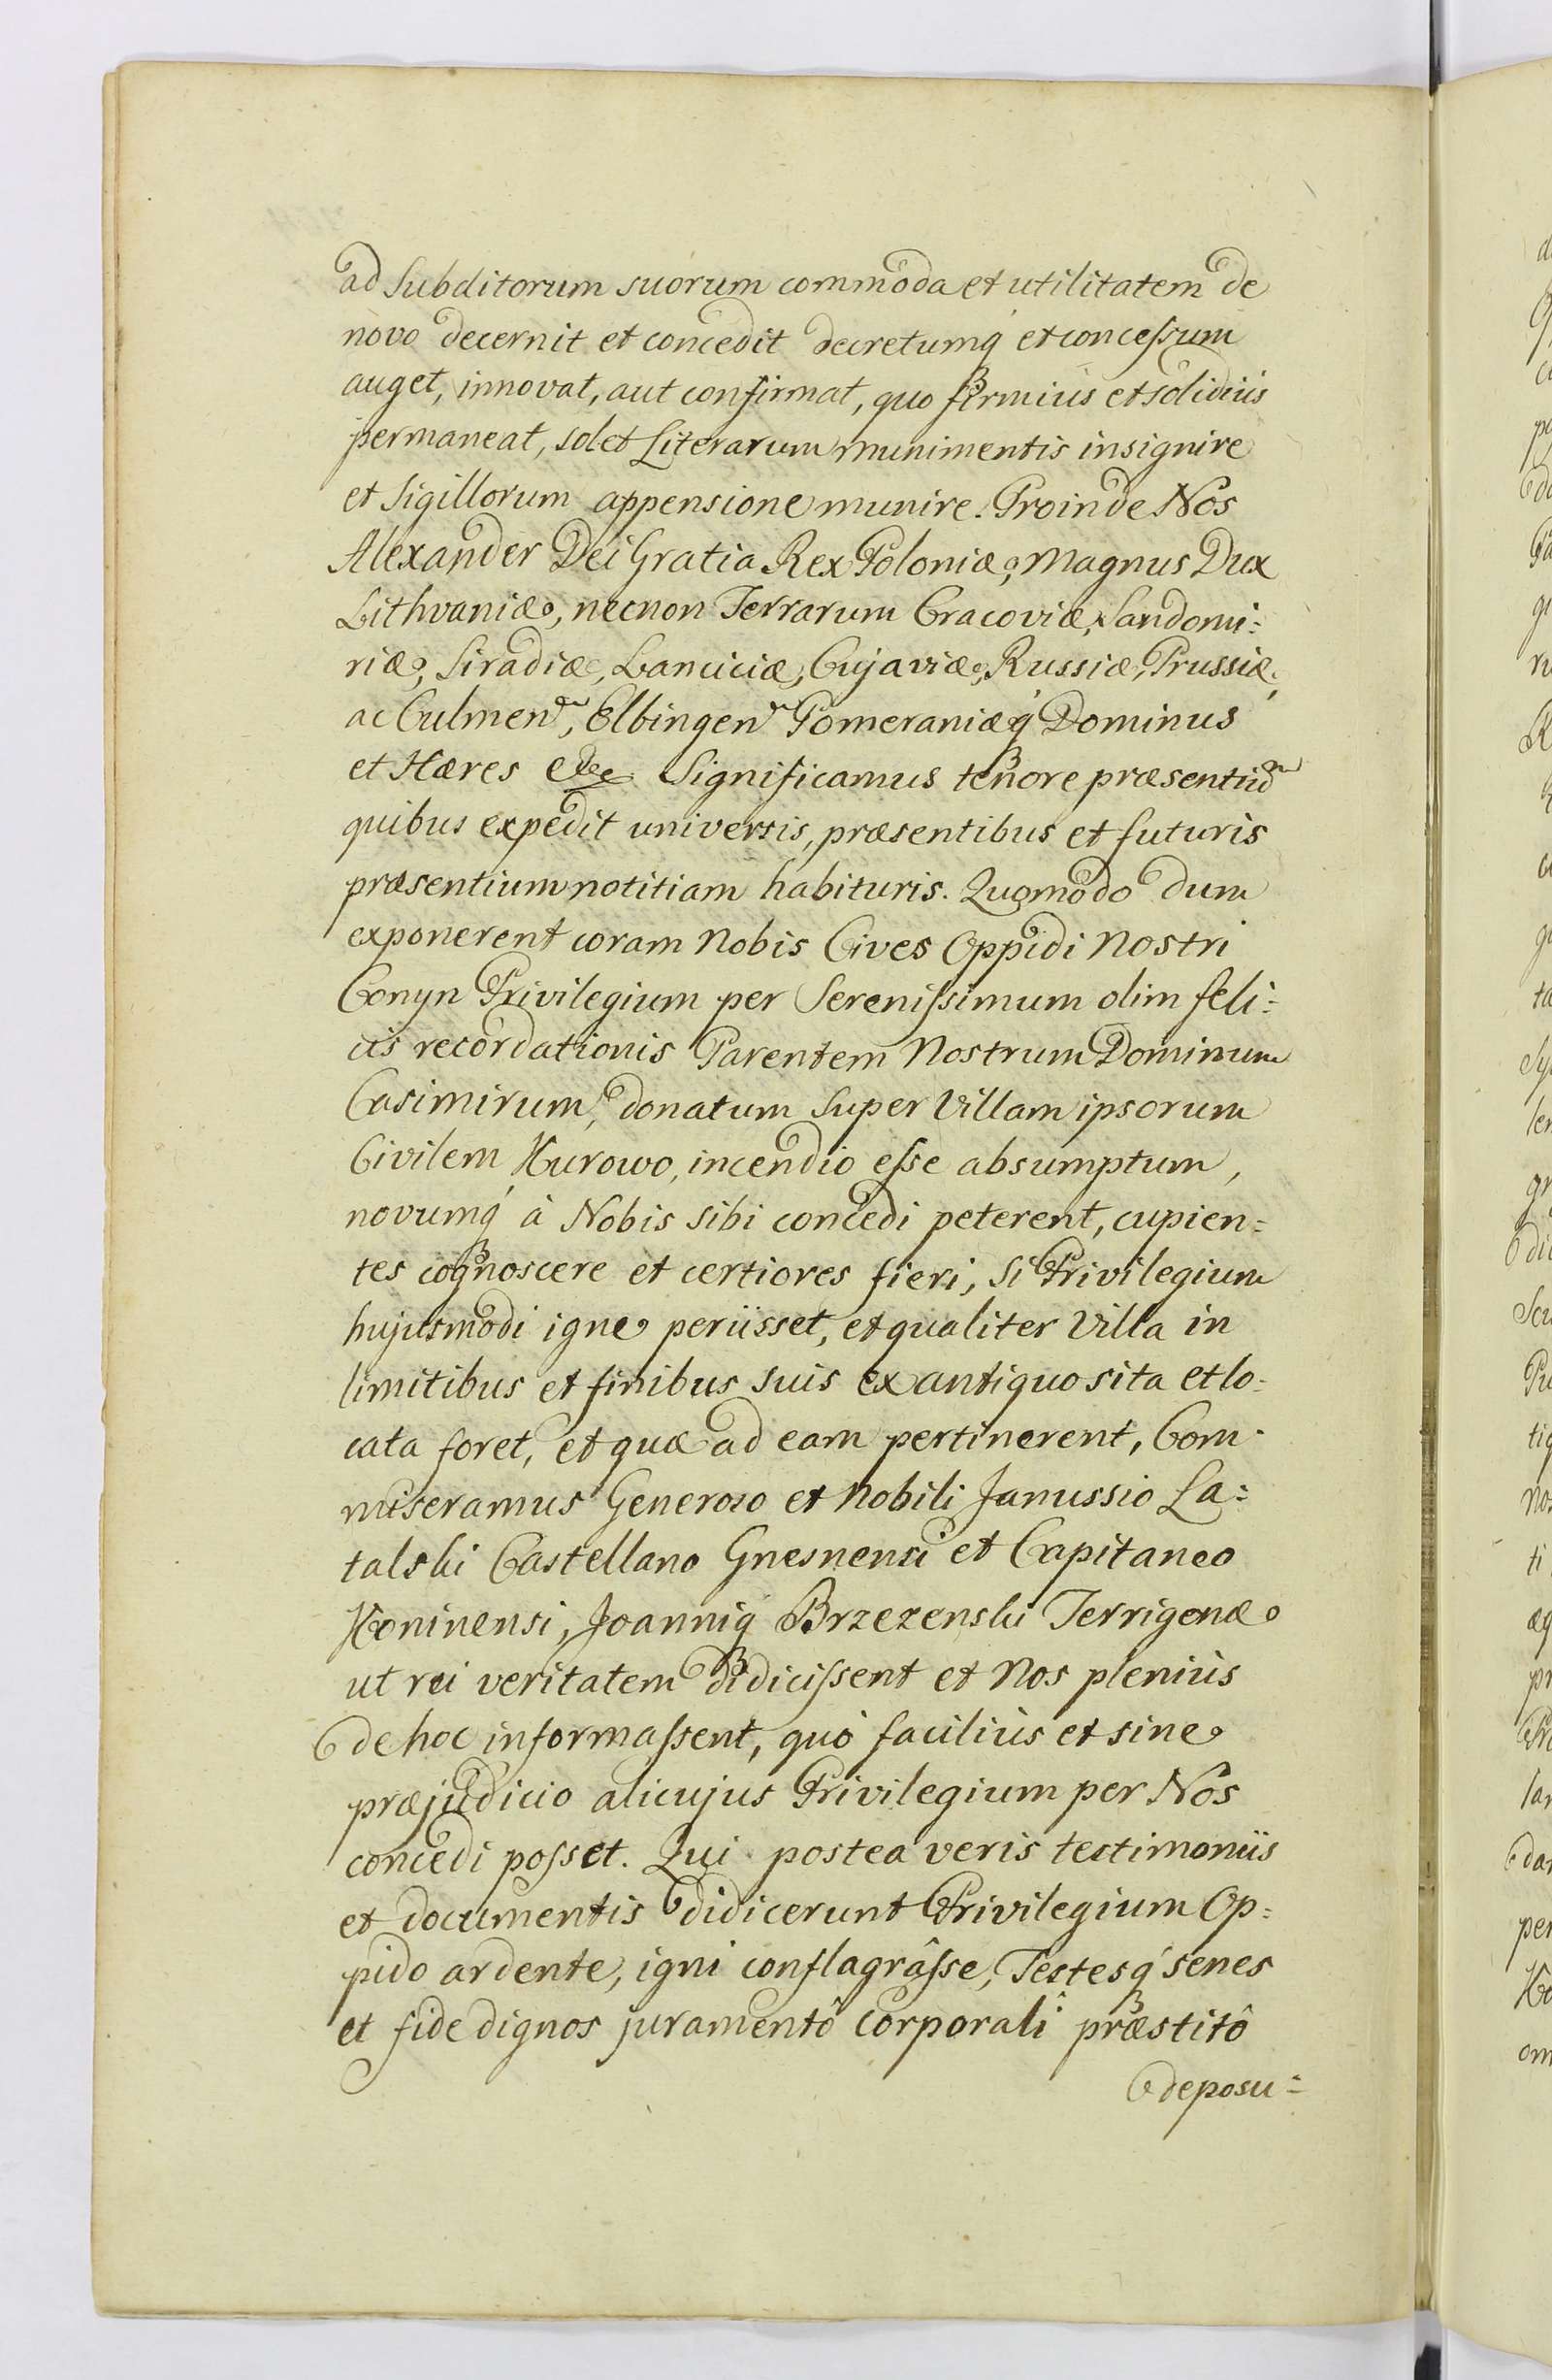 ad Subditorum suorum commoda et utilitatem de
novo decernit et concedit decretumq́ et conceſsum
auget, innovat, aut confirmat, quo firmiùs et solidiùs
permaneat, solet Literarum munimentis insignire
et Sigillorum appensione munire. Proinde Nos
Alexander Dei Gratia Rex Poloniæ, Magnus Dux
Lithvaniæ, necnon Terrarum Cracoviæ, Sandomi:
riæ, Siradiæ, Lanciciæ, Cujaviæ, Russiæ, Prussiæ,
ac Culmen, Elbingen Pomeraniæq́ Dominus
et Hæres etc Significamus tenore præsentiu
quibus expedit universis, præsentibus et futuris
præsentium notitiam habituris. Quomodo dum
exponerent coram Nobis Cives Oppidi Nostri
Conyn Privilegium per Sereniſsimum olim feli:
cis recordationis Parentem Nostrum Dominum
Casimirum, donatum super Villam ipsorum
Civilem Kurowo, incendio eſse absumptum,
novumq́ à Nobis sibi concedi peterent, cupien:
tes cognoscere et certiores fieri, si Privilegium
hujusmodi igne periisset, et qualiter Villa in
limitibus et finibus suis ex antiquo sita et lo:
cata foret, et quæ ad eam pertinerent, Com:
miseramus Generoso et Nobili Janussio La:
talski Castellano Gnesnensi et Capitaneo
Koninensi, Joanniq́ Brzezenski Terrigenæ
ut rei veritatem didiciſsent et Nos pleniùs
de hoc informaſsent, quò faciliùs et sine
præjudicio alicujus Privilegium per Nos
concedi poſset. Qui postea veris testimoniis
et documentis didicerunt Privilegium Op:
pido ardente, igni conflagrâſse, Testesq́ senes
et fide dignos juramentô corporali præstitô
deposu:
d
po
do
gi
R
ta
ler
di
Scu
tiq
nos
ti
æq
pr
lar
dar
per
om